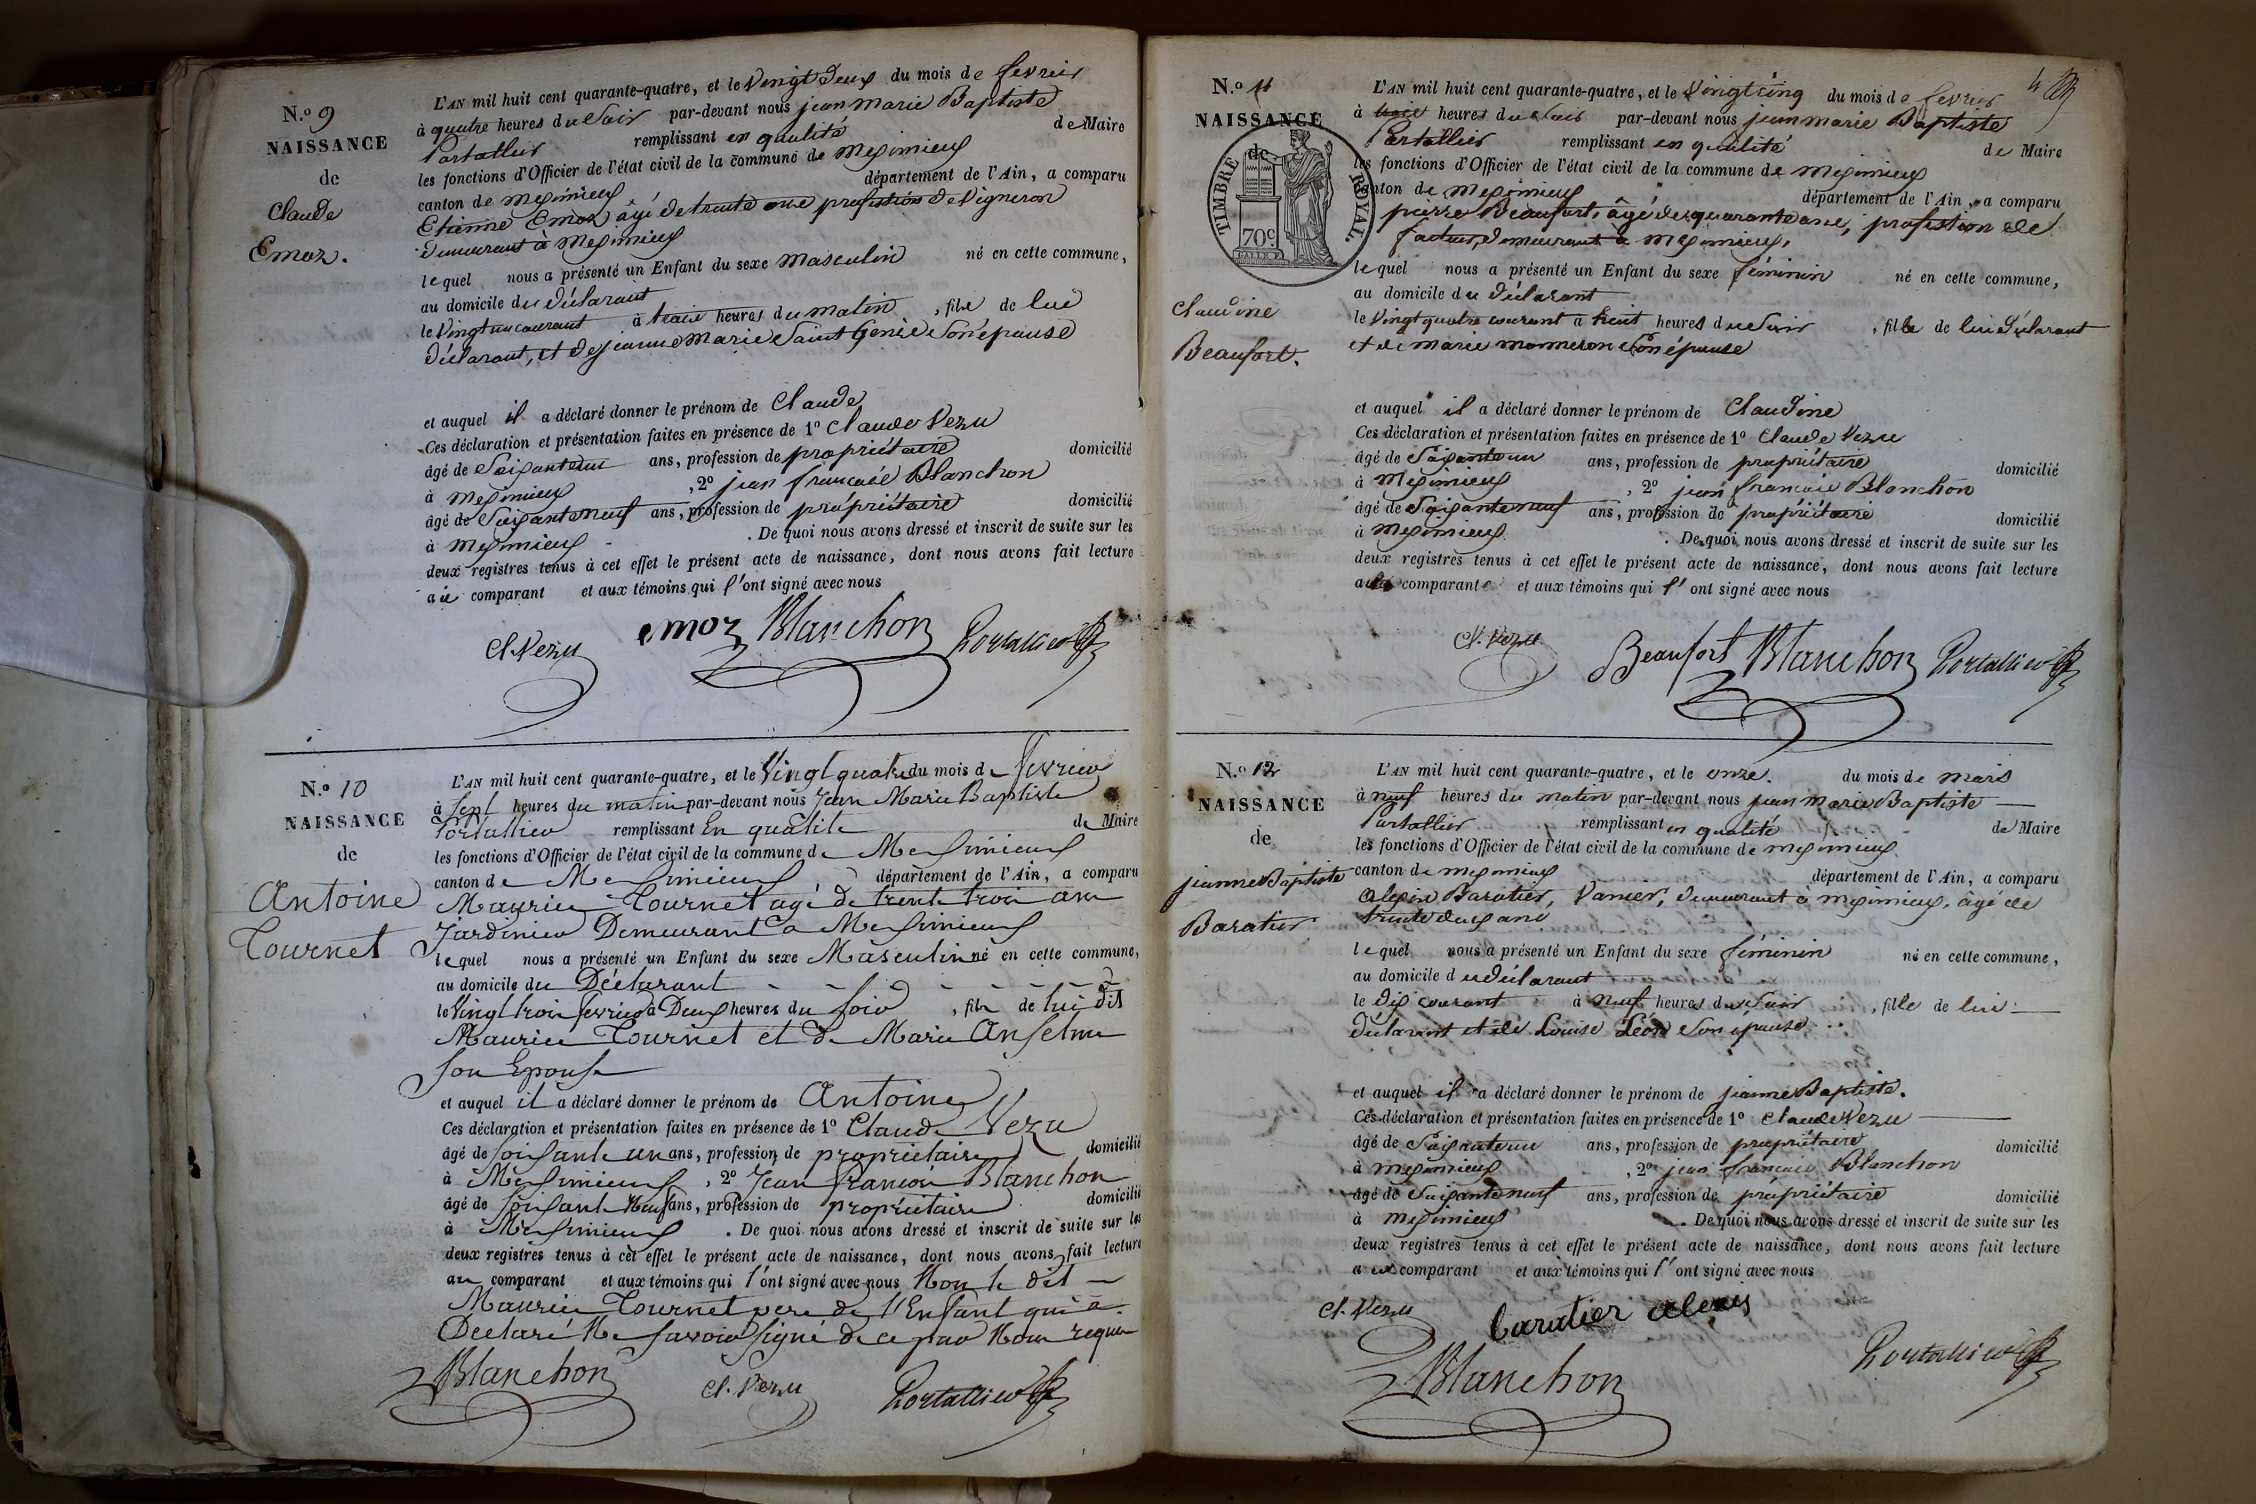 N.o 9
NAISSANCE
de
Claude
Emoz.
L'AN mil huit cent quarante-quatre, et le vingt deux du mois de fevrier
à quatre heures du soir par-devant nous jean marie Baptiste
Portallier remplissant en qualité de Maire
les fonctions d'Officier de l'état civil de la commune de meximieux
canton de meximieux département de l'Ain, a comparu
Etienne Emoz, âgé de trente ans profession de Vigneron
demeurant à Meximieux
lequel nous a présenté un Enfant du sexe masculin né en cette commune,
au domicile du déclarant
le vingt un courant à heures du matin, fils de lui
déclarant, et de jeanne marie Saint Genis son épouse
et auquel il a déclaré donner le prénom de Claude
Ces déclaration et présentation faites en présence de 1o Claude Vezu
âgé de soixante un ans, profession de propriétaire domicilié
à meximieux, 2o jean francois Blanchon
âgé de soixante neuf ans, profession de propriétaire domicilié
à meximieux. De quoi nous avons dressé et inscrit de suite sur les
deux registres tenus à cet effet le présent acte de naissance, dont nous avons fait lecture
au comparant et aux témoins qui l'ont signé avec nous
Cl. Vezu emoz Blanchon Portallier
N.o 10
NAISSANCE
de
Antoine
Tournet
L'AN mil huit cent quarante-quatre, et le Vingt quatre du mois de fevrier
à sept heures du matin par-devant nous Jean Marie Baptiste
Portallier remplissant En qualité de Maire
les fonctions d'Officier de l'état civil de la commune de Meximieux
canton de Meximieux département de l'Ain, a comparu
Maurice Tournet agé de trente trois ans
Jardinier Demeurant a Meximieux
lequel nous a présenté un Enfant du sexe Masculin né en cette commune,
au domicile du Déclarant
le Vingt trois fevrier à Deux heures du soir, fils de lui dit
Maurice Tournet et de Marie Anselme
son Epouse
et auquel il a déclaré donner le prénom de Antoine
Ces déclaration et présentation faites en présence de 1o Claude Vezu
âgé de soixante un ans, profession de propriétaire domicilié
à Meximieux, 2o Jean françois Blanchon
âgé de soixante Neuf ans, profession de propriétaire domicilié
à Meximieux. De quoi nous avons dressé et inscrit de suite sur les
deux registres tenus à cet effet le présent acte de naissance, dont nous avons fait lecture
au comparant et aux témoins qui l'ont signé avec nous Non le dit
Maurice Tournet pere de l'Enfant qui a
Declaré Ne savoir signé de ce par Nous requis
Blanchon Cl. Vezu Portallier
4
N.o 11
NAISSANCE
de
TIMBRE ROYAL.
70c.
Claudine
Beaufort.
L'AN mil huit cent quarante-quatre, et le vingt cinq du mois de fevrier
à heures du soir par-devant nous jean marie Baptiste
Portallier remplissant en qualité de Maire
les fonctions d'Officier de l'état civil de la commune de meximieux
canton de meximieux département de l'Ain, a comparu
pierre Beaufort, âgé de quarante ans, profession de
facteur, demeurant à meximieux,
lequel nous a présenté un Enfant du sexe féminin né en cette commune,
au domicile du déclarant
le vingt quatre courant à huit heures du soir, fille de lui déclarant
et de marie monneron son épouse
et auquel il a déclaré donner le prénom de Claudine
Ces déclaration et présentation faites en présence de 1o Claude Vezu
âgé de soixante un ans, profession de propriétaire domicilié
à meximieux, 2o jean francois Blanchon
âgé de soixante neuf ans, profession de propriétaire domicilié
à meximieux. De quoi nous avons dressé et inscrit de suite sur les
deux registres tenus à cet effet le présent acte de naissance, dont nous avons fait lecture
au comparant et aux témoins qui l'ont signé avec nous
Cl. Vezu Beaufort Blanchon Portallier
N.o 12
NAISSANCE
de
jeanne Baptiste
Baratier
L'AN mil huit cent quarante-quatre, et le onze. du mois de mars
à neuf heures du matin par-devant nous jean marie Baptiste
Portallier remplissant en qualité de Maire
les fonctions d'Officier de l'état civil de la commune de meximieux
canton de meximieux département de l'Ain, a comparu
alexis Baratier, Vanier, demeurant à meximieux, âgé de
trente deux ans
lequel nous a présenté un Enfant du sexe féminin né en cette commune,
au domicile du déclarant
le dix courant à neuf heures du soir, fille de lui
déclarant et de Louise Léon son épouse
et auquel il a déclaré donner le prénom de jeanne Baptiste.
Ces déclaration et présentation faites en présence de 1o Claude Vezu
âgé de soixante un ans, profession de propriétaire domicilié
à meximieux, 2o jean francois Blanchon
âgé de soixante neuf ans, profession de propriétaire domicilié
à meximieux. De quoi nous avons dressé et inscrit de suite sur les
deux registres tenus à cet effet le présent acte de naissance, dont nous avons fait lecture
au comparant et aux témoins qui l'ont signé avec nous
Cl. Vezu baratier alexis
Blanchon Portallier